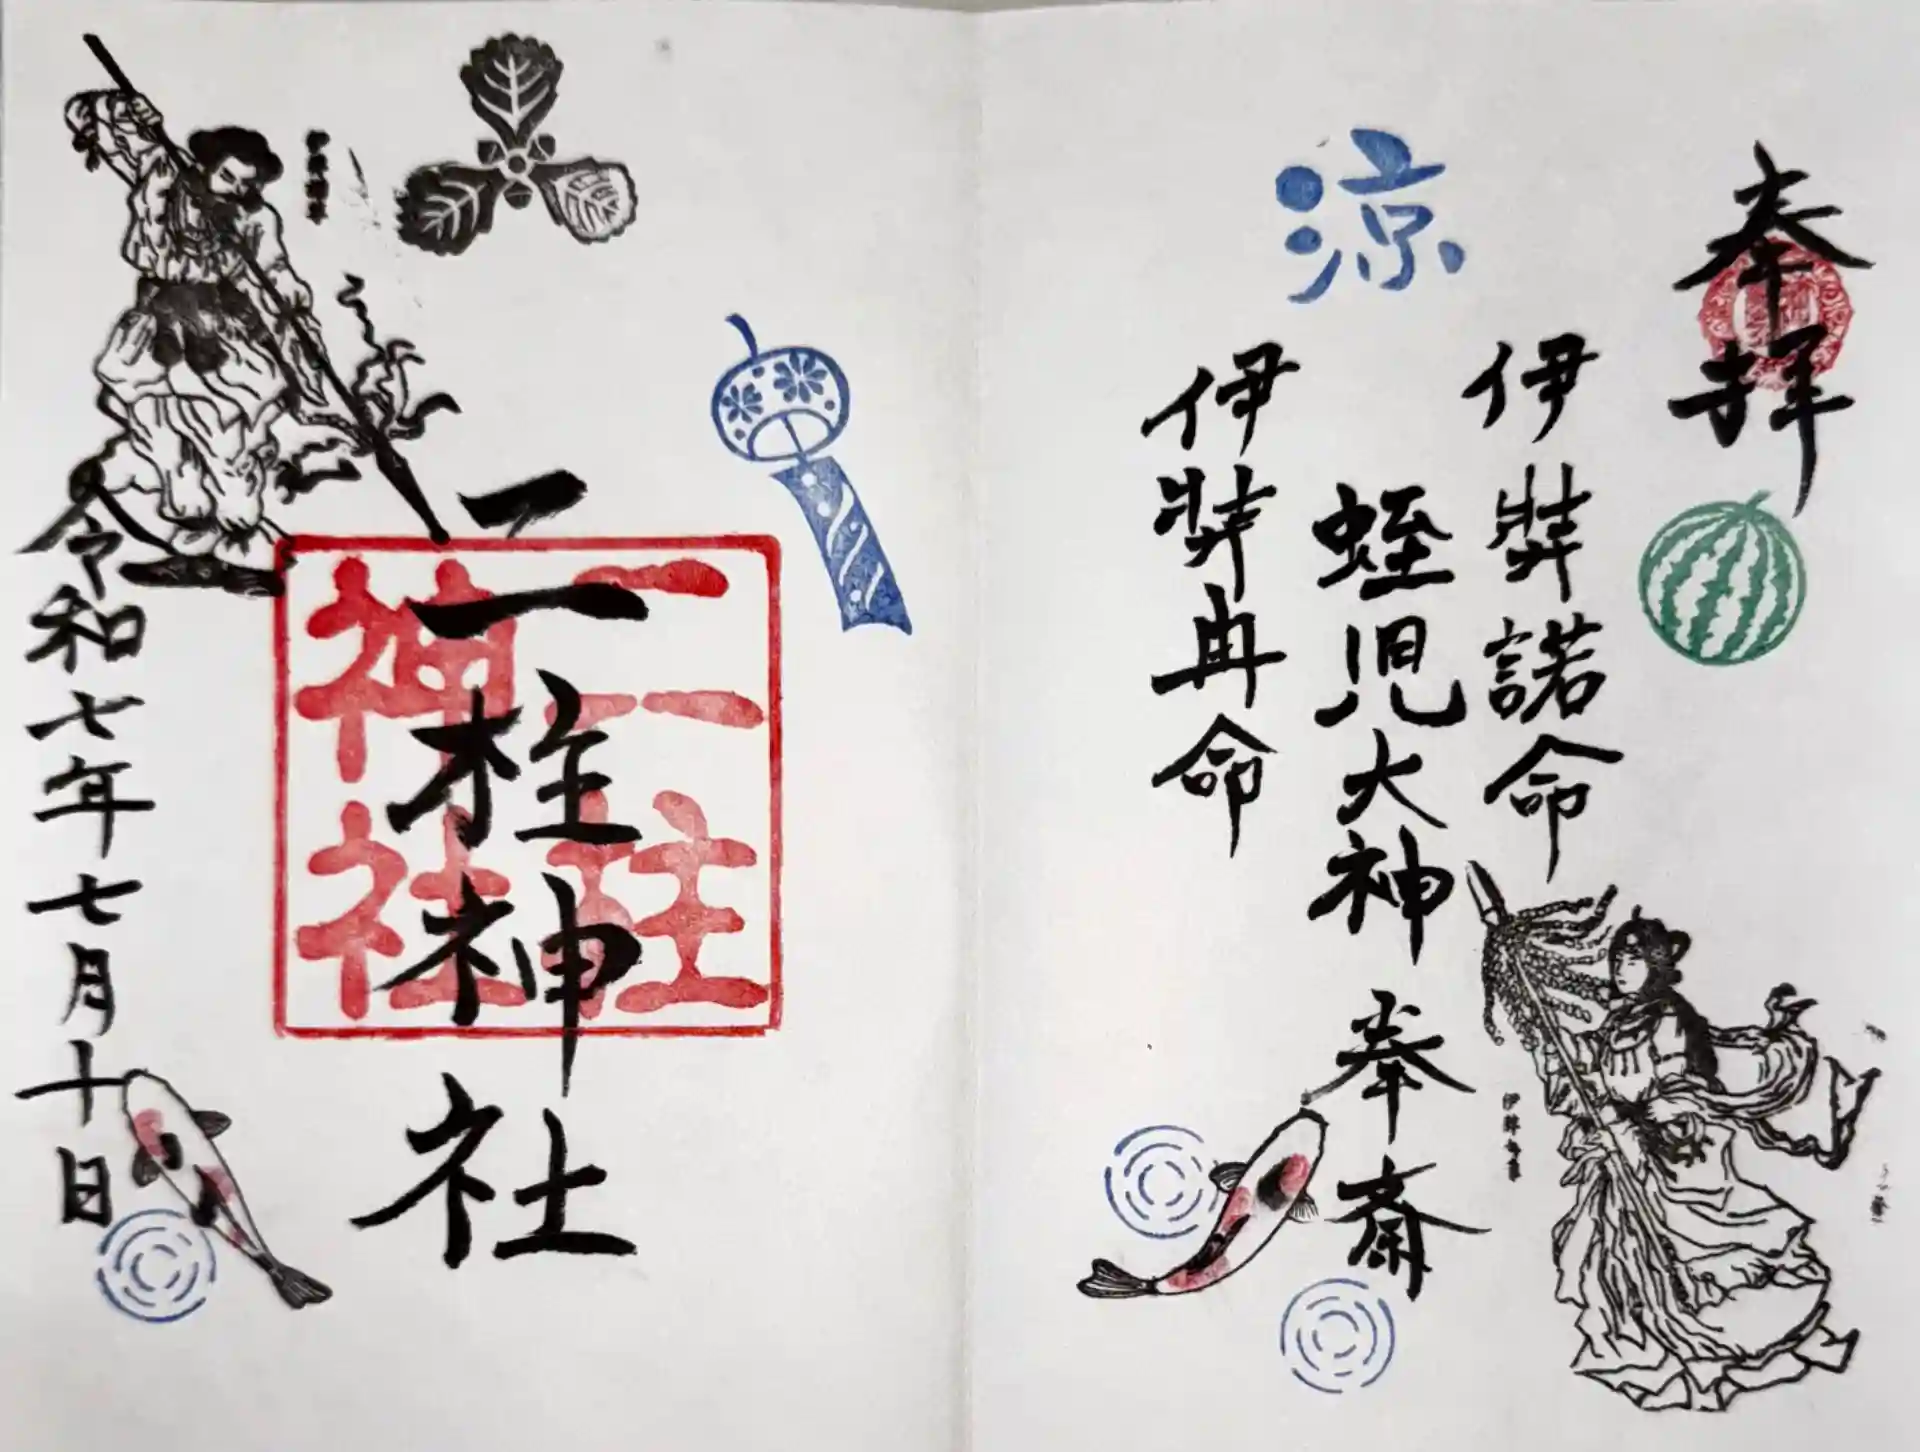 奉拝
伊弉諾命
涼
蛭児大神 奉斎
伊弉冉命
二柱神社
二柱
神社
令和七年七月十日